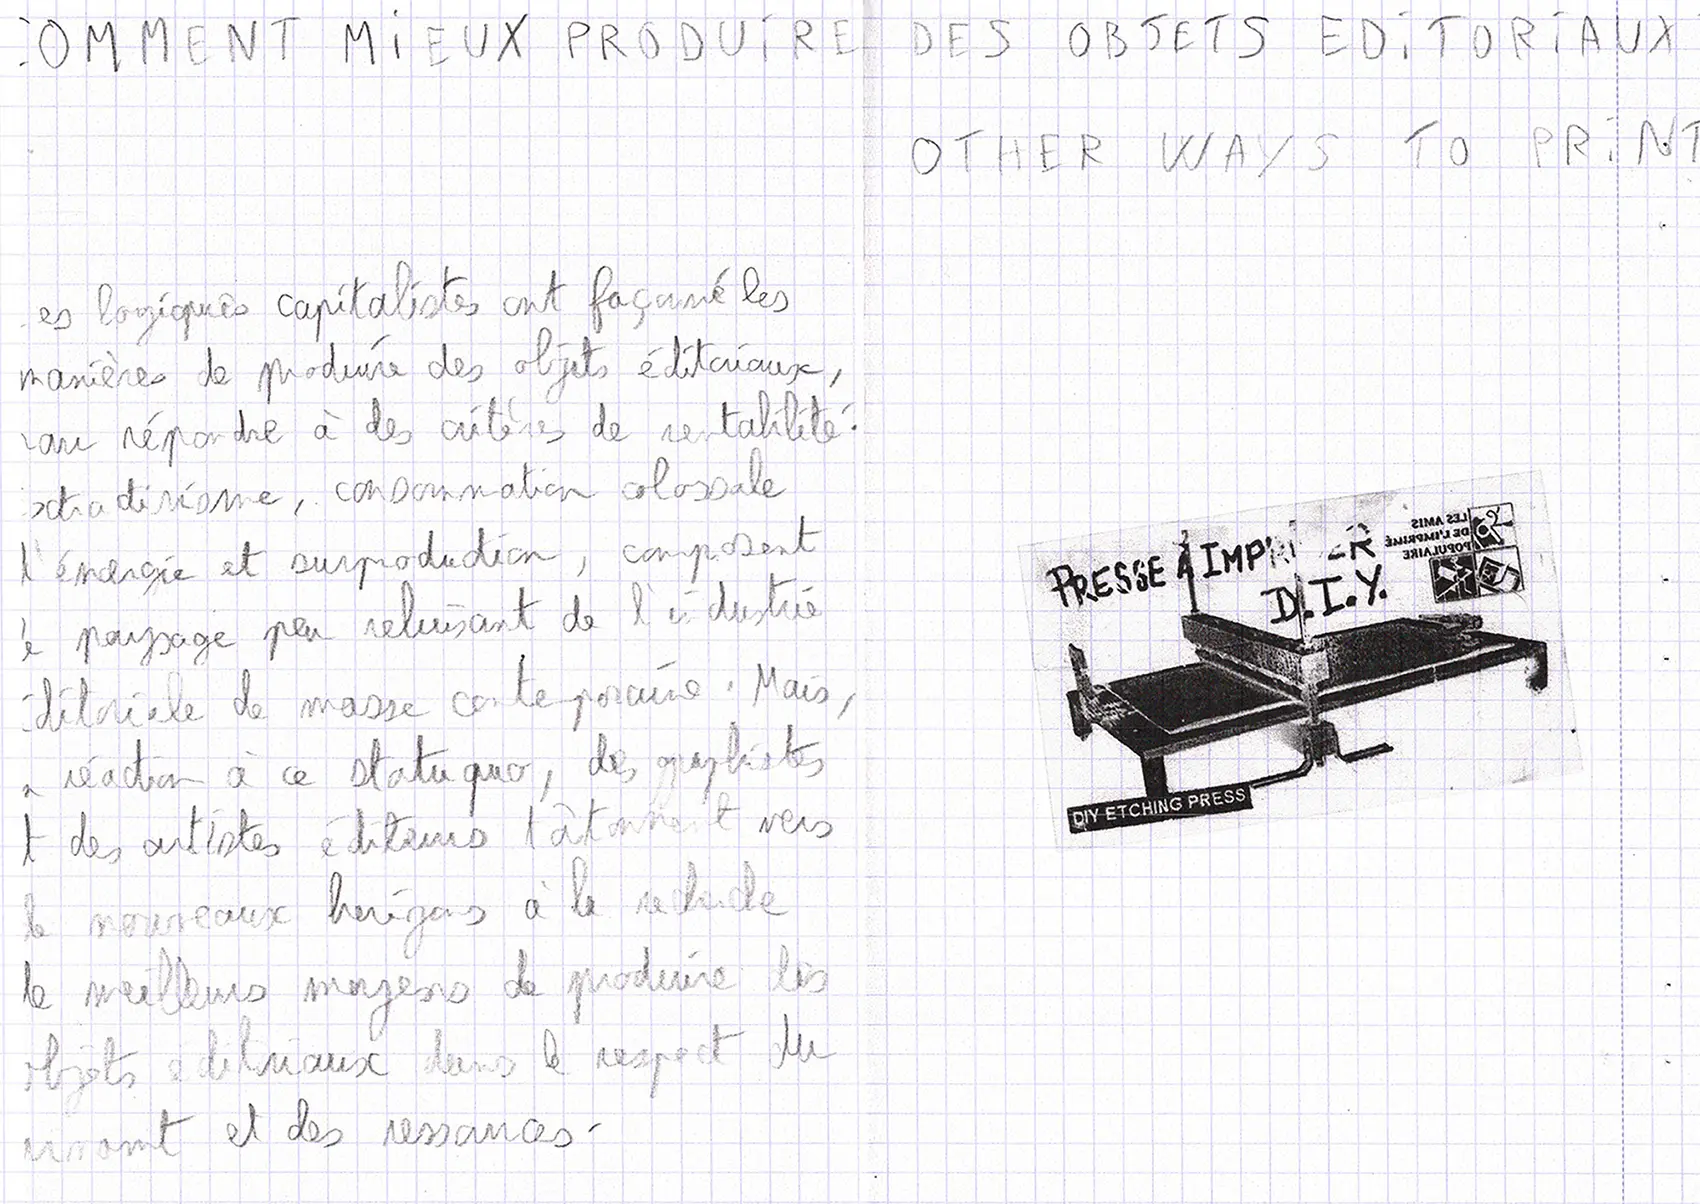 COMMENT MiEUX PRODUiRE DES OBJETS EDiTORiAUX
OTHER WAYS TO PRiNT
es logiques capitalistes ont façonné les
manières de produire des objets éditoriaux,
pour répondre à des critères de rentabilité:
extractivisme, consommation colossale
d'énergie et surproduction, composent
le paysage peu reluisant de l'industrie
éditoriale de masse contemporaine. Mais,
en réaction à ce statu quo, des graphistes
et des artistes éditeurs tâtonnent vers
de nouveaux horizons à la recherche
de meilleurs moyens de produire les
objets éditoriaux dans le respect du
vivant et des ressources.
PRESSE À IMPRIMER
D.I.Y.
LES AMIS
DE L'IMPRIMÉ
POPULAIRE
DIY ETCHING PRESS